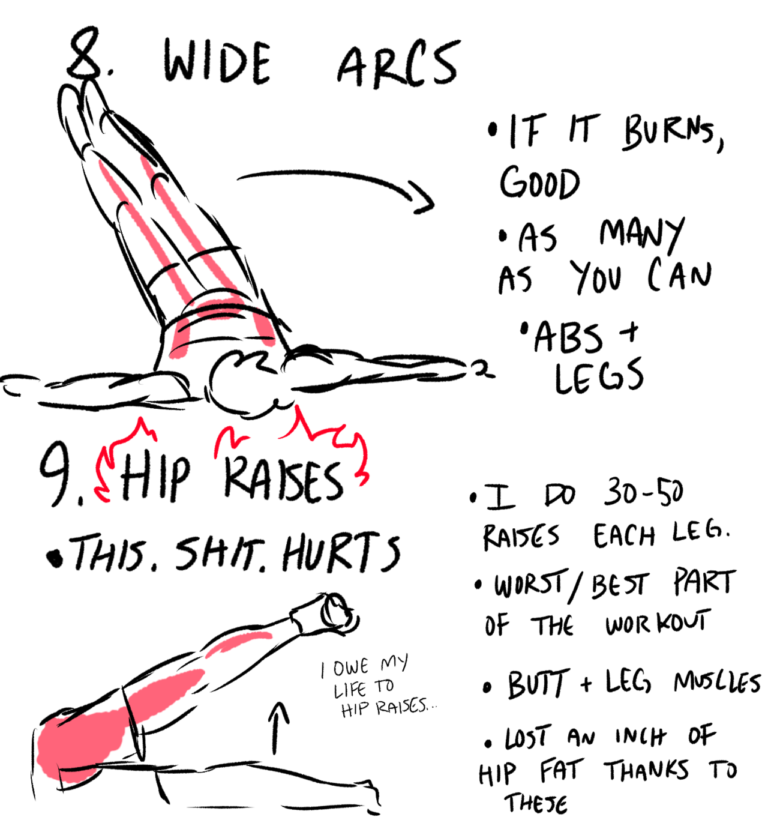 8. WIDE ARCS
• IF IT BURNS,
GOOD
• AS MANY
AS YOU CAN
• ABS +
LEGS
9. HIP RAISES
• THIS. SHIT. HURTS
I OWE MY
LIFE TO
HIP RAISES...
• I DO 30-50
RAISES EACH LEG.
• WORST/BEST PART
OF THE WORKOUT
• BUTT + LEG MUSCLES
• LOST AN INCH OF
HIP FAT THANKS TO
THESE